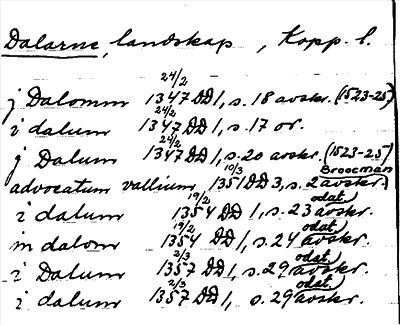 Dalarne, landskap, Kopp. l.
j Dalomm 24/2 1347 DD 1, s. 18 avskr. (1523-25)
i dalum 24/2 1347 DD 1, s. 17 or.
j Dalum 24/2 1347 DD 1, s. 20 avskr. (1523-25)
advocatum vallium 10/3 1351 DD 3, s. 2 avskr. (Broocman)
i dalum 19/2 1354 DD 1, s. 23 odat. avskr.
in dalom 19/2 1354 DD 1, s. 24 odat. avskr.
i Dalum 2/3 1357 DD 1, s. 29 odat. avskr.
i dalum 2/3 1357 DD 1, s. 29 odat. avskr.